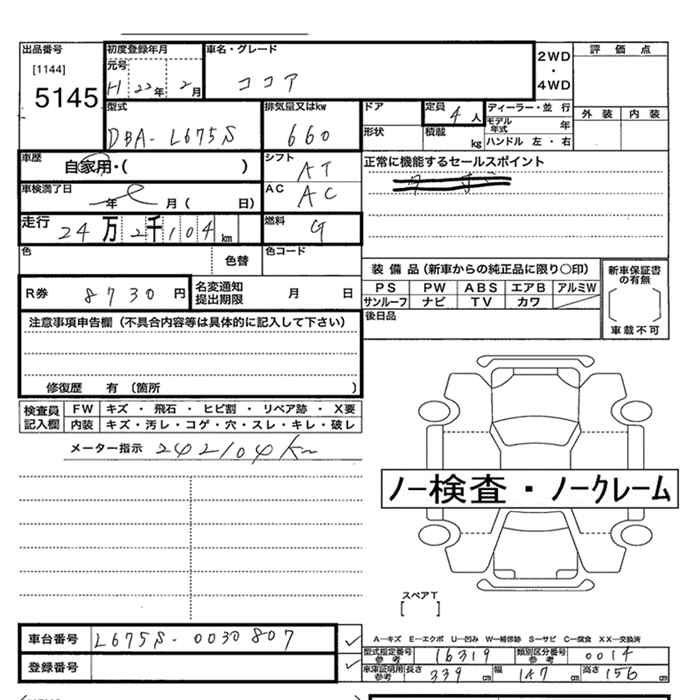 出品番号
[1144]
5145
初度登録年月
元号
H 22年 2月
車名・グレード
ココア
2WD
・
4WD
評価点
外装 内装
型式
DBA-L675S
排気量又はkw
660
ドア
形状
定員
4人
積載
kg
ディーラー・並行
モデル年式 年
ハンドル 左・右
車歴
自家用・( )
シフト
AT
正常に機能するセールスポイント
車検満了日
年 月( 日)
AC
AC
走行
24万2千104km
燃料
G
色
色替
色コード
R券 8730円
名変通知
提出期限 月 日
装備品(新車からの純正品に限り〇印)
PS PW ABS エアB アルミW
サンルーフ ナビ TV カワ
後日品
新車保証書
の有無
車載不可
注意事項申告欄(不具合内容等は具体的に記入して下さい)
修復歴 有(箇所 )
検査員
記入欄
FW キズ・飛石・ヒビ割・リペア跡・X要
内装 キズ・汚レ・コゲ・穴・スレ・キレ・破レ
メーター指示 242104km
ノー検査・ノークレーム
スペアT
[ ]
車台番号 L675S-0030807
登録番号
A―キズ E―エクボ U―凹み W―補修跡 S―サビ C―腐食 XX―交換済
型式指定番号
参考 16319
類別区分番号
参考 0014
車庫証明用
参考
長さ 339cm 幅 147cm 高さ 156cm